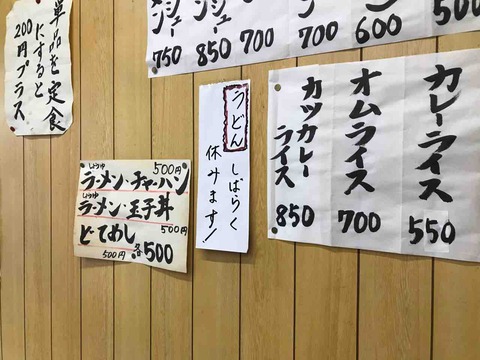 単品を定食
にすると
200円プラス
750
850
700
700
600
500
うどん
しばらく
休みます!
カレーライス
550
オムライス
700
カツカレー
ライス
850
500円
しょうゆ
ラーメン・チャーハン
しょうゆ
ラーメン・玉子丼
500円
と・てめし
500円
各500